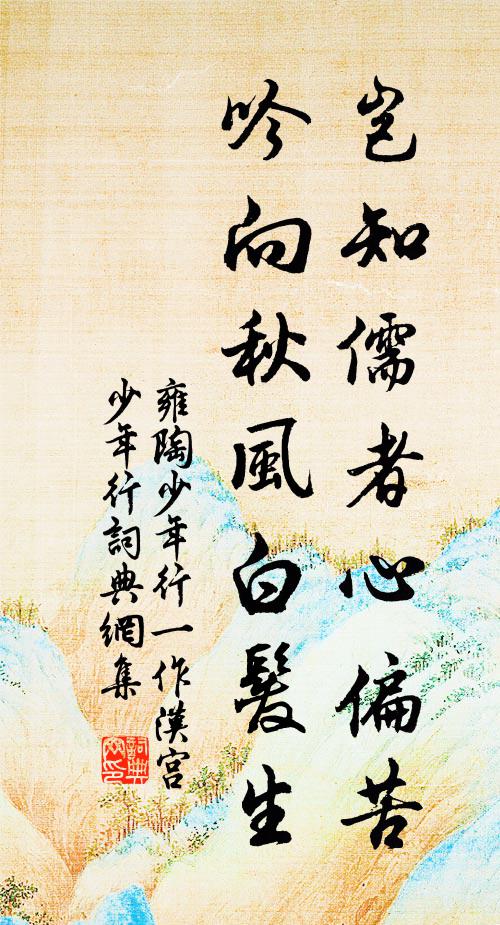 豈知儒者心偏苦
吟向秋風白髮生
雍陶少年行一作漢宮
少年行詞典網集
詞典網印